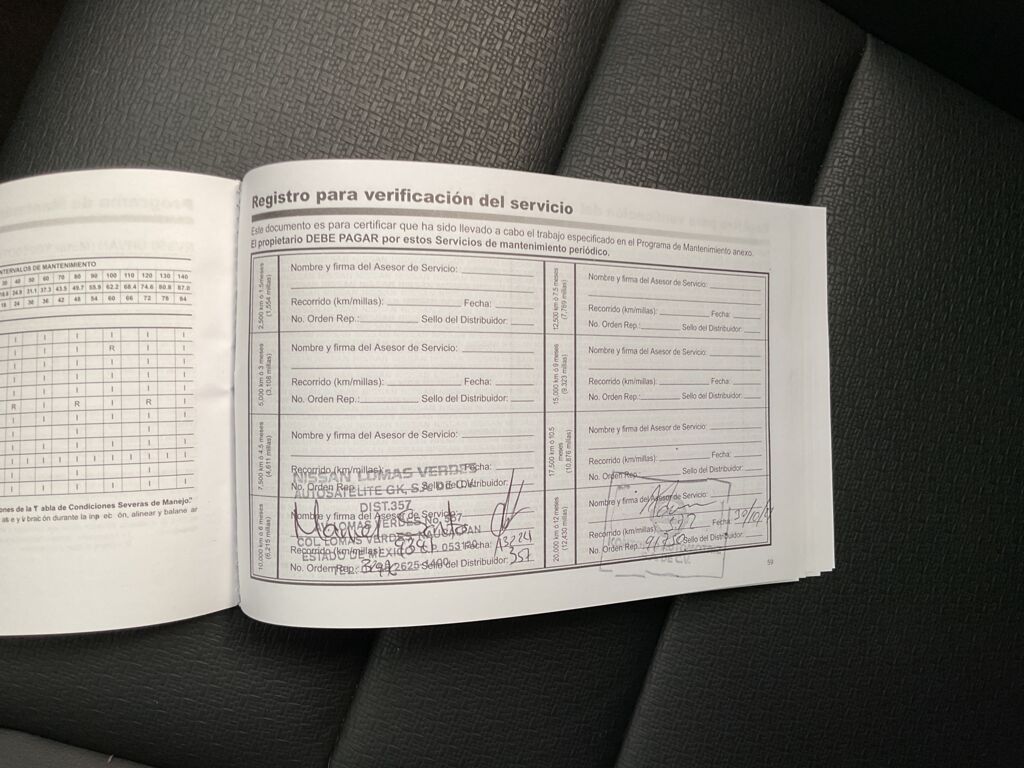 INTERVALOS DE MANTENIMIENTO
30 40 50 60 70 80 90 100 110 120 130 140
18.6 24.9 31.1 37.3 43.5 49.7 55.9 62.2 68.4 74.6 80.8 87.0
18 24 30 36 42 48 54 60 66 72 78 84
I I I I I I
I I I R I I
I I I I I I
I I I I I I
I I I I I I
I I I I I I
R I R I R I
I I I I I I
I I I I I I
I I I I I I
I I I I I I I I I I I I
I I I I I I
I I I I I I
I I I I I I
iones de la T abla de Condiciones Severas de Manejo."
as e v brac ón durante la inp ec ón, alinear y balance ar
Registro para verificación del servicio
Este documento es para certificar que ha sido llevado a cabo el trabajo especificado en el Programa de Mantenimiento anexo.
El propietario DEBE PAGAR por estos Servicios de mantenimiento periódico.
2,500 km ó 1.5 meses
(1,554 millas)
Nombre y firma del Asesor de Servicio:
Recorrido (km/millas): Fecha:
No. Orden Rep.: Sello del Distribuidor:
5,000 km ó 3 meses
(3,108 millas)
Nombre y firma del Asesor de Servicio:
Recorrido (km/millas): Fecha:
No. Orden Rep.: Sello del Distribuidor:
7,500 km ó 4.5 meses
(4,611 millas)
Nombre y firma del Asesor de Servicio:
Recorrido (km/millas): Fecha:
NISSAN LOMAS VERDES
No. Orden Rep. Sello del Distribuidor:
AUTOSATELITE GK, S.A. DE C.V.
DIST.357
10,000 km ó 6 meses
(6,215 millas)
Nombre y firma del Asesor de Servicio:
LOMAS VERDES No.
COL LOMAS VERDES NAUCALPAN
Recorrido (km/millas): Fecha:
ESTADO DE MEXICO C.P 053120
No. Orden Rep.: Sello del Distribuidor: 357
TEL. 2625-1400
12,500 km ó 7.5 meses
(7,769 millas)
Nombre y firma del Asesor de Servicio:
Recorrido (km/millas): Fecha:
No. Orden Rep.: Sello del Distribuidor:
15,000 km ó 9 meses
(9,323 millas)
Nombre y firma del Asesor de Servicio:
Recorrido (km/millas): Fecha:
No. Orden Rep.: Sello del Distribuidor:
17,500 km ó 10.5
meses
(10,876 millas)
Nombre y firma del Asesor de Servicio:
Recorrido (km/millas): Fecha:
No. Orden Rep.: Sello del Distribuidor:
20,000 km ó 12 meses
(12,430 millas)
Nombre y firma del Asesor de Servicio:
Recorrido (km/millas): Fecha:
No. Orden Rep.: 91350 Sello del Distribuidor:
59